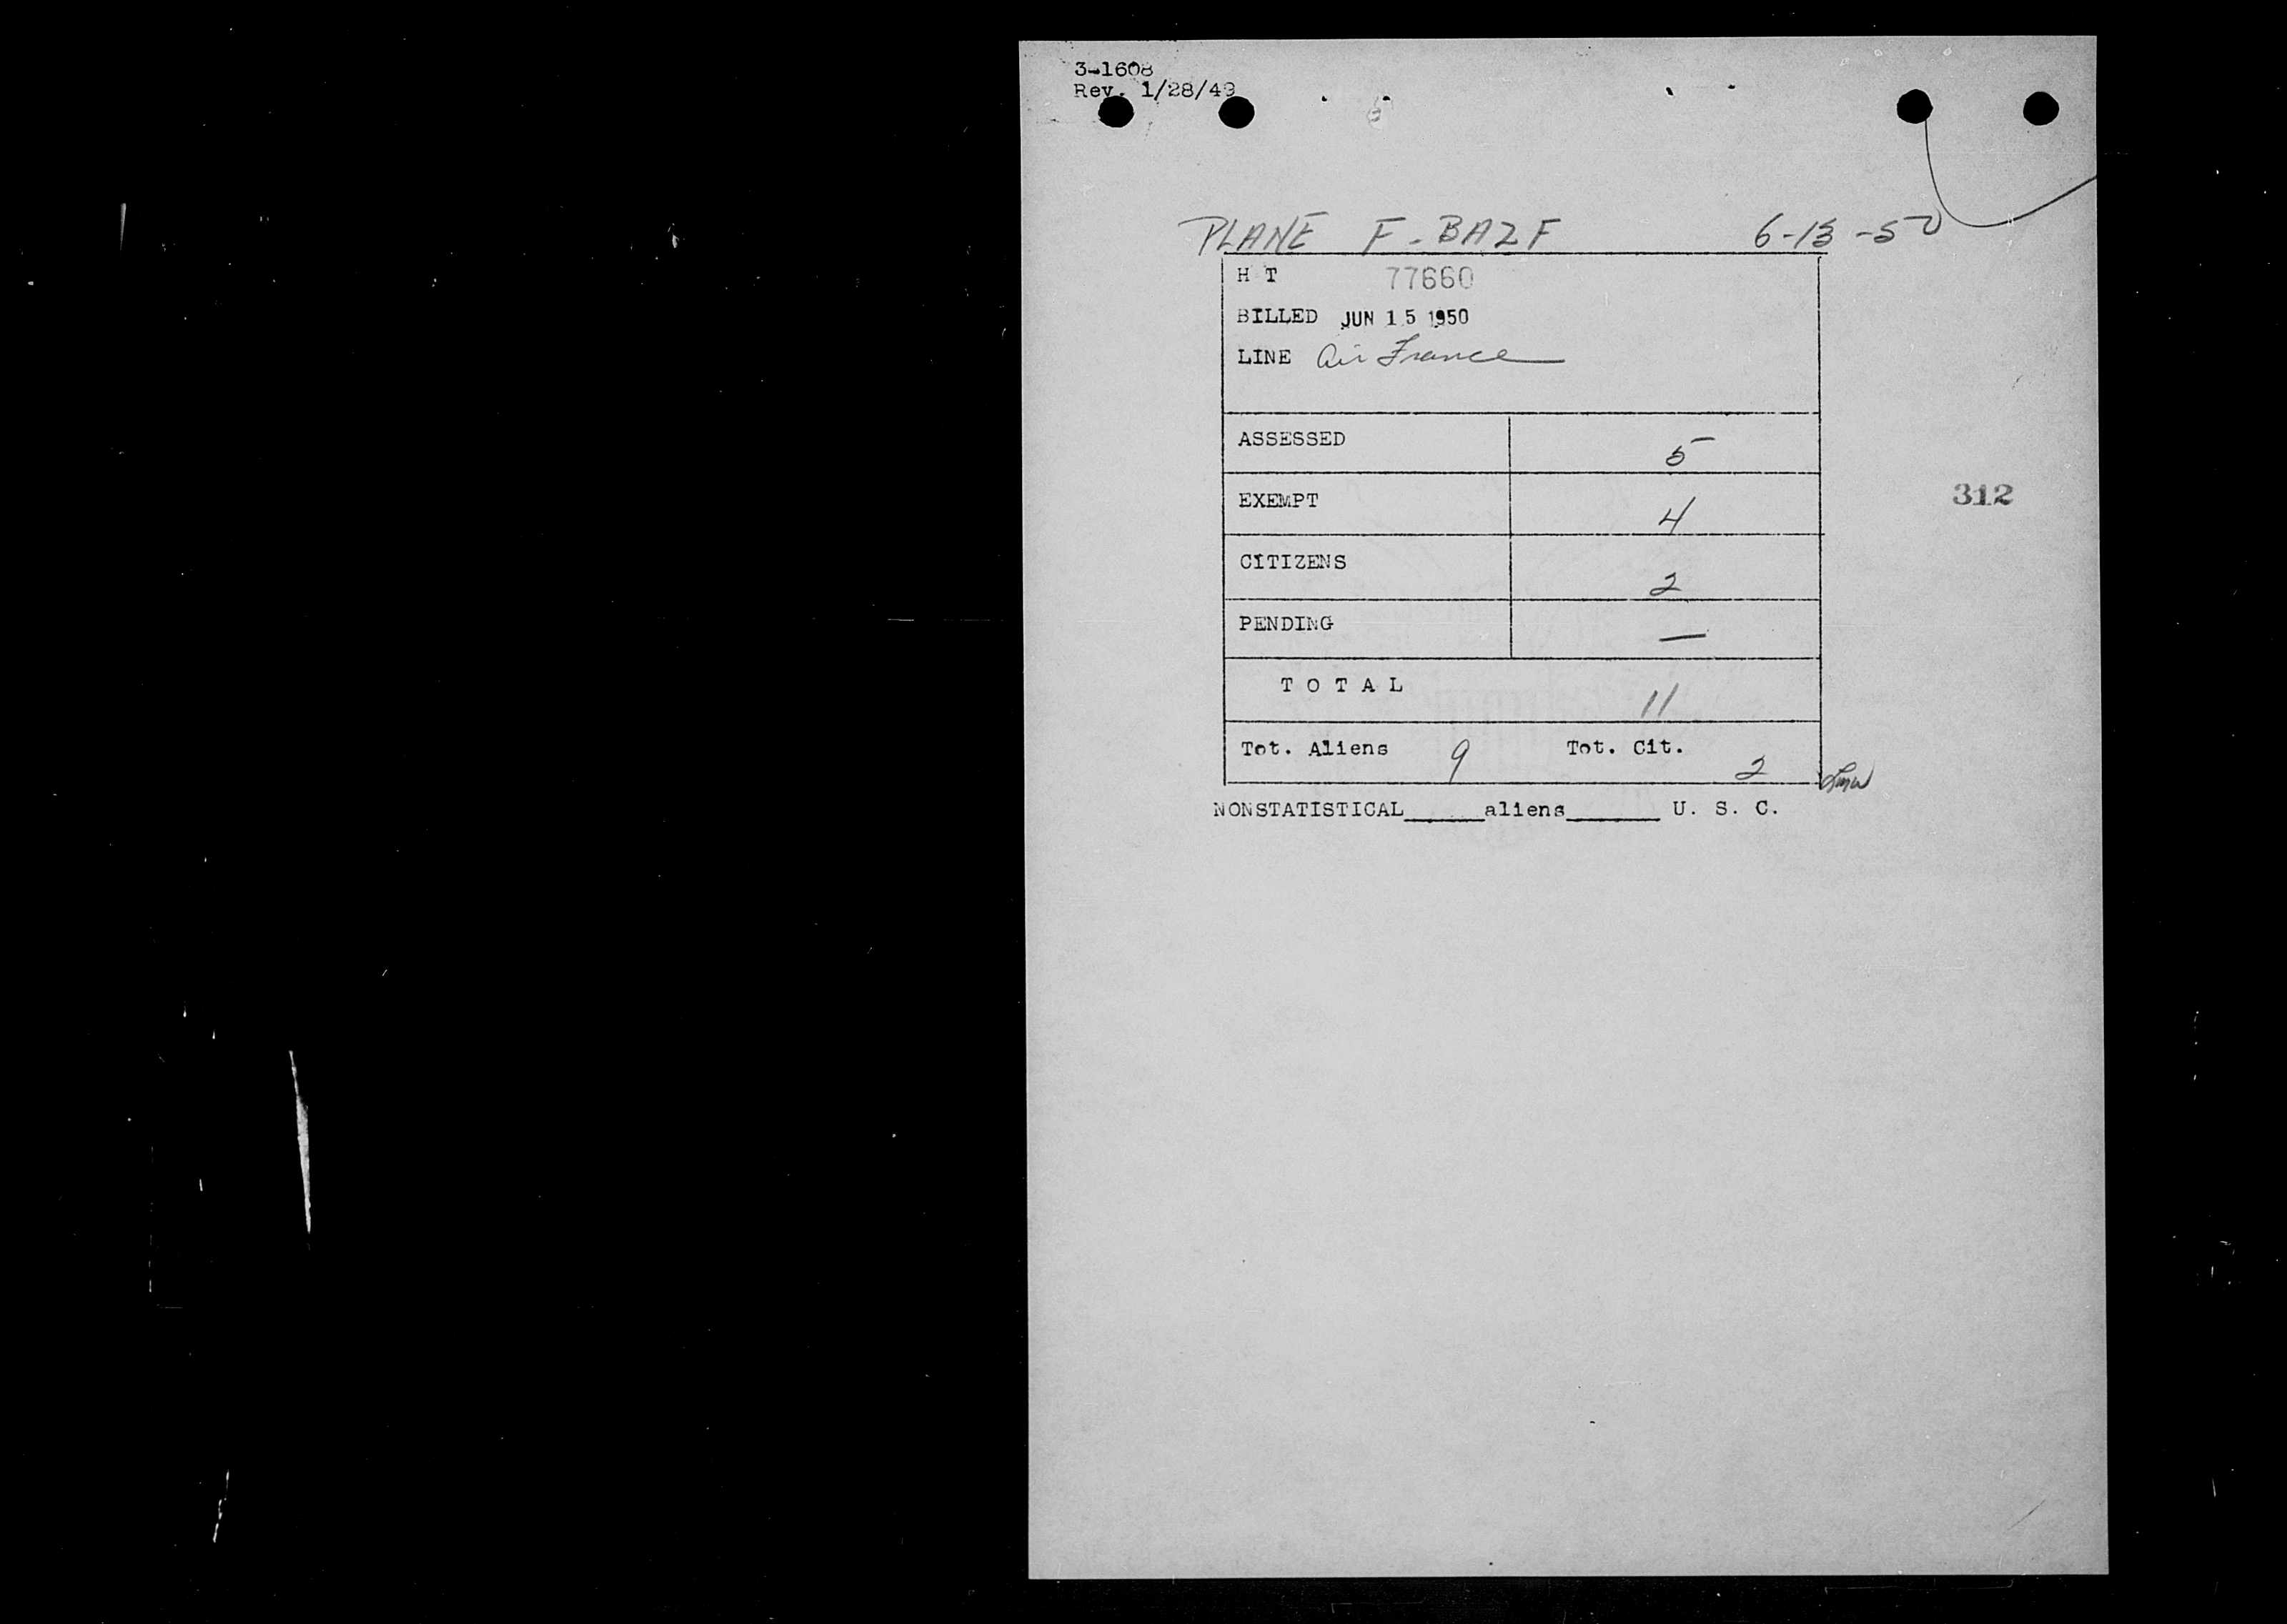 3-1608
Rev. 1/28/49
PLANE F-BAZF 6-13-50
H T 77660
BILLED JUN 15 1950
LINE Air France
ASSESSED 5
EXEMPT 4
312
CITIZENS 2
PENDING —
T O T A L 11
Tot. Aliens 9 Tot. Cit. 2
NONSTATISTICAL_____aliens______ U. S. C.